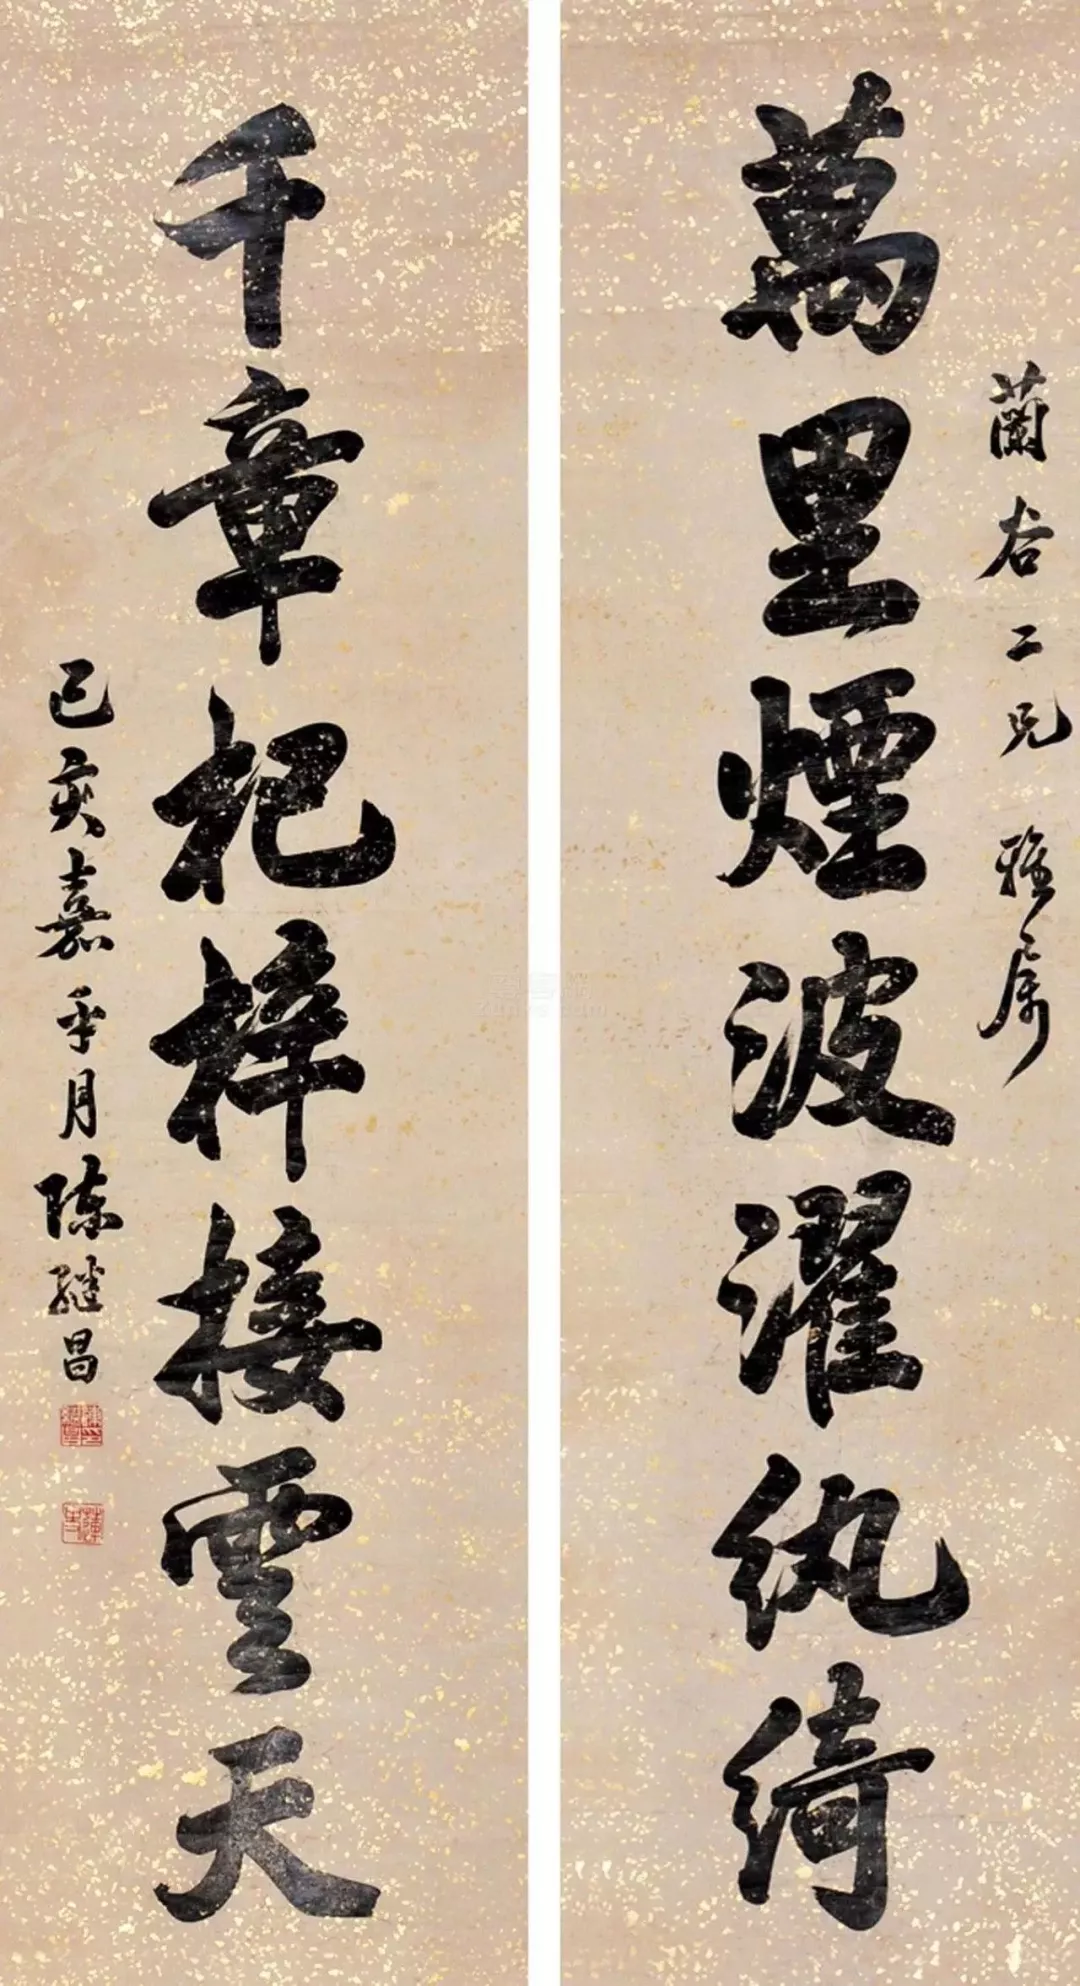 蘭谷二兄雅属
萬里煙波濯紈綺
千章杞梓接雲天
己亥嘉平月陳繼昌